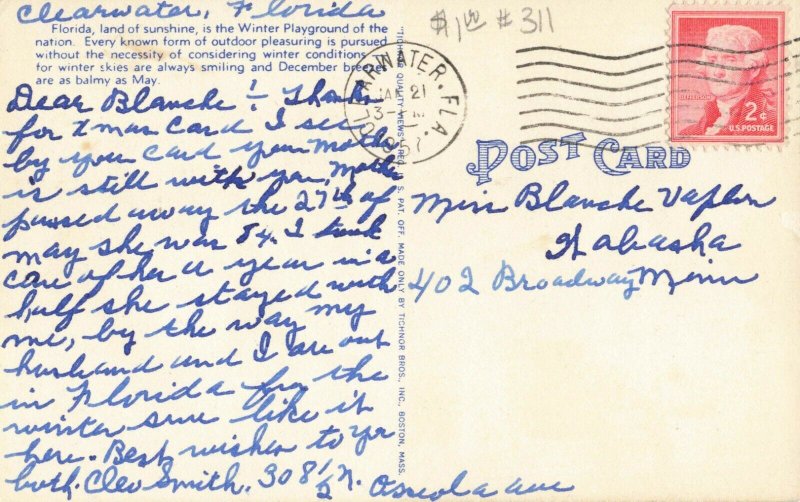 Clearwater, Florida
Florida, land of sunshine, is the Winter Playground of the
nation. Every known form of outdoor pleasuring is pursued
without the necessity of considering winter conditions
for winter skies are always smiling and December breezes
are as balmy as May.
Dear Blanche! Thank
for Xmas Card I see
by your card your Mother
is still with you, Mother
passed away the 27th of
may she was 84. I took
care of her a year in a
half she stayed with
me, by the way my
husband and I are out
in Florida for the
winter sure like it
here. Best wishes to yo
both. Cleo Smith. 308 1/2 N. Osceola ave
$1.00 #311
CLEARWATER, FLA.
JAN 21
1957
2¢
JEFFERSON
U.S. POSTAGE
POST CARD
Miss Blanche
Wabasha
402 Broadway Minn
"TICHNOR QUALITY VIEWS" REG. U. S. PAT. OFF. MADE ONLY BY TICHNOR BROS., INC., BOSTON, MASS.